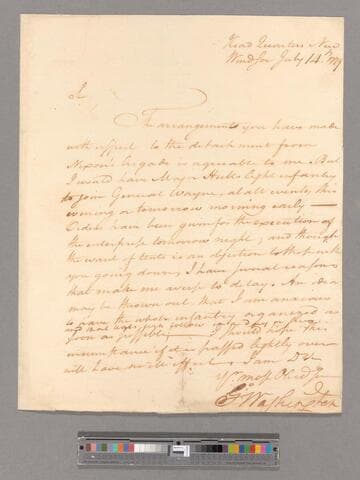 Head Quarters New
Windsor July 14th 1779
Sir
The arrangements you have made
with respect to the detachment from
Nixon's brigade is agreeable to me. But
I would have Major Hull's light infantry
to join General Wayne, at all events, this
evening or tomorrow morning early —
Orders have been given for the execution of
the enterprise tomorrow night; and though
the want of tents is an objection to the
you going down, I have several reasons
that make me averse to delay. An idea
may be thrown out, that I am anxious
to have the whole infantry organized as
soon as possible
and that tents shall follow in a day or two
would hope this
circumstance if passed lightly over
will have no ill effect. I am Dr Sir
Yr most Obedt Sr
Go Washington